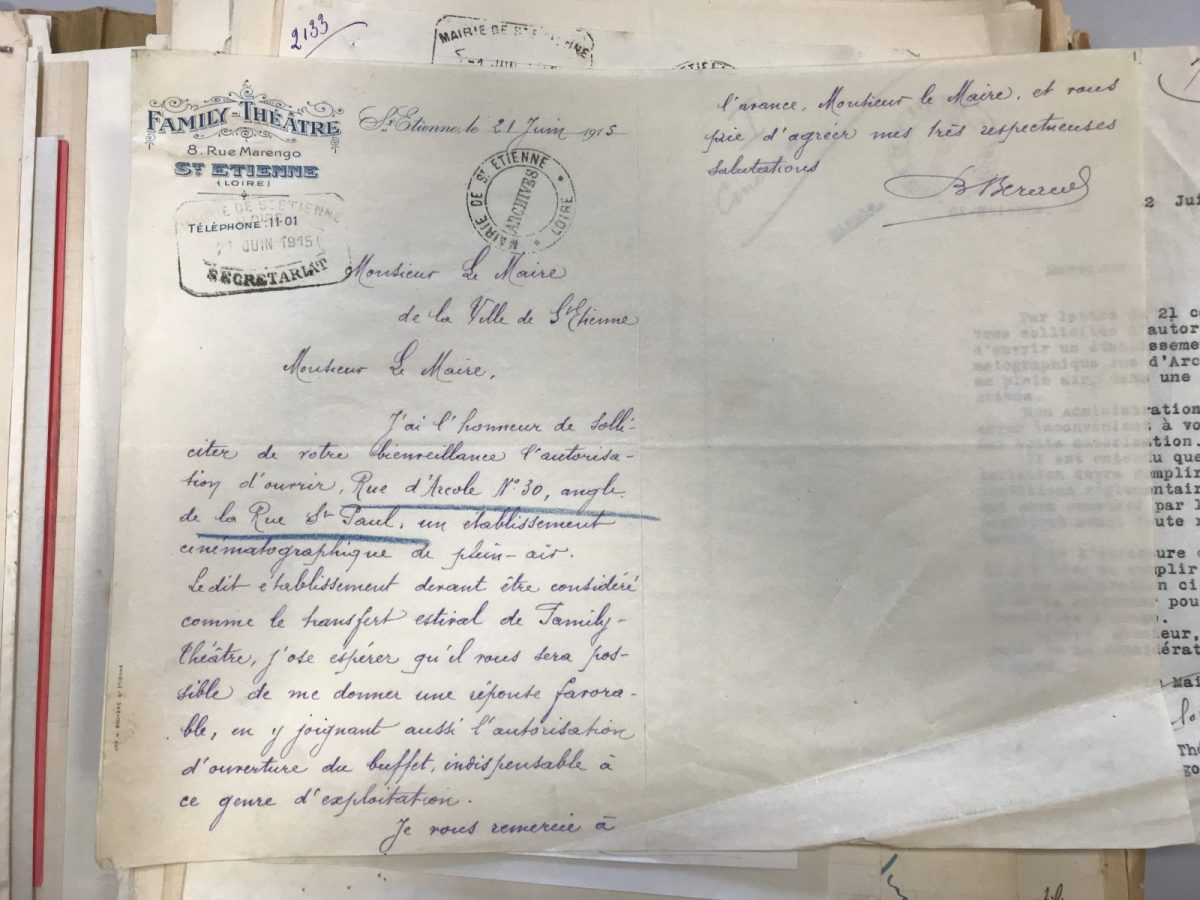 2133
MAIRIE DE ST ETIENNE
JUIN
FAMILY-THÉÂTRE
8, Rue Marengo
ST ETIENNE
(LOIRE)
TÉLÉPHONE: 11-01
MAIRIE DE ST ETIENNE
LOIRE
21 JUIN 1915
SECRÉTARIAT
St Etienne, le 21 Juin 1915
MAIRIE DE ST ETIENNE
ARCHIVES
LOIRE
Monsieur Le Maire
de la Ville de St Etienne
Monsieur Le Maire,
J'ai l'honneur de solli-
citer de votre bienveillance l'autorisa-
tion d'ouvrir, Rue d'Arcole N° 30, angle
de la Rue St Paul, un établissement
cinématographique de plein-air.
Le dit établissement devant être considéré
comme le transfert estival de Family-
Théâtre, j'ose espérer qu'il vous sera pos-
sible de me donner une réponse favora-
ble, en y joignant aussi l'autorisation
d'ouverture du buffet, indispensable à
ce genre d'exploitation.
Je vous remercie à
l'avance, Monsieur le Maire, et vous
prie d'agréer mes très respectueuses
salutations
2 Jui
Par lettre 21 c
vous sollicitez autor
d'ouvrir un établissemen
matographique rue d'Arc
en plein air, dans une
Mon Administration
à vo
tion.
u que
mplir
ntair
par l
ure
mplir
n ci
pou
eur,
dérat
Mai
Thé
go